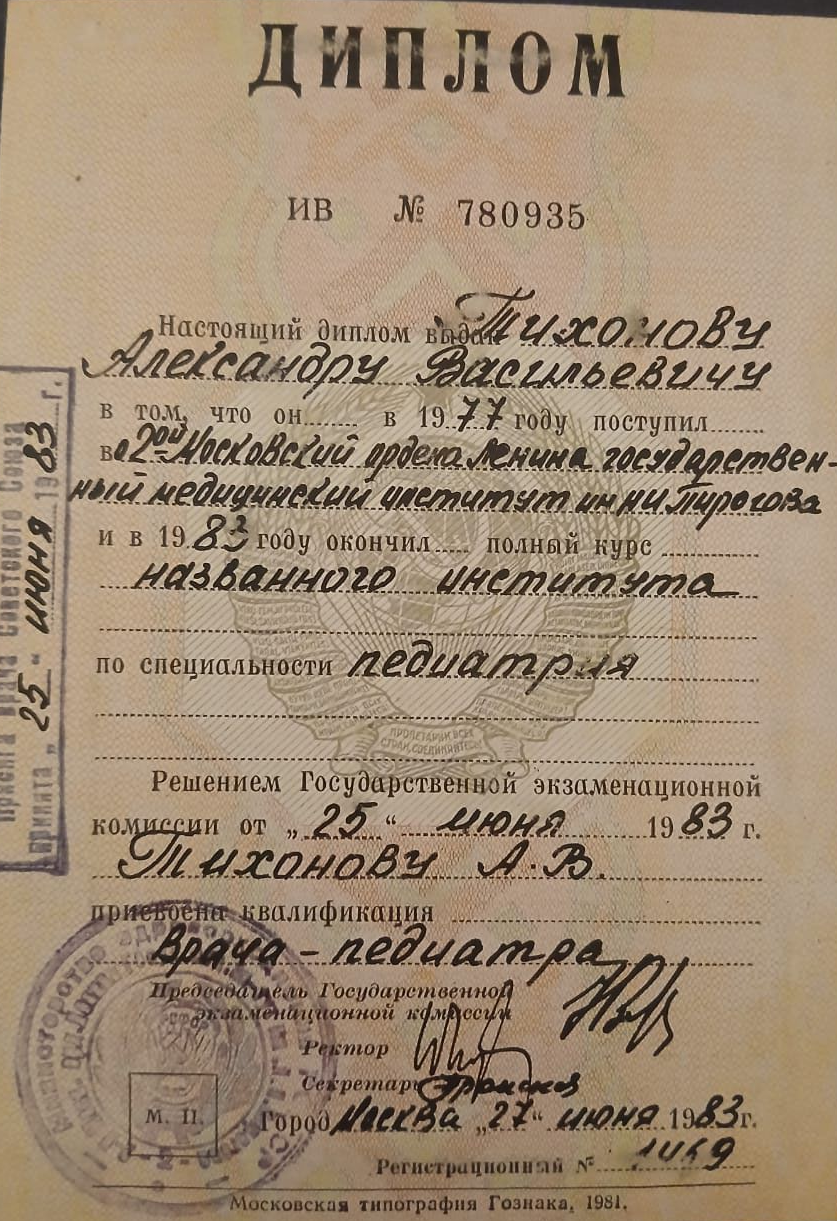 ДИПЛОМ
ИВ № 780935
Настоящий диплом выдан Тихонову
Александру Васильевичу
в том, что он в 1977 году поступил
во 2ой Московский ордена Ленина государствен-
ный медицинский институт им Н И Пирогова
и в 1983 году окончил полный курс
названного института
по специальности педиатрия
ПРОЛЕТАРИИ ВСЕХ
СТРАН, СОЕДИНЯЙТЕСЬ!
Решением Государственной экзаменационной
комиссии от „25“ июня 1983 г.
Тихонову А. В.
присвоена квалификация
Врача - педиатра
Председатель Государственной
экзаменационной комиссии
Ректор
Секретарь
М. П.
Город Москва „27“ июня 1983 г.
Регистрационный №
Московская типография Гознака, 1981.
Присяга врача Советского Союза
принята „25“ июня 1983 г.
Министерство